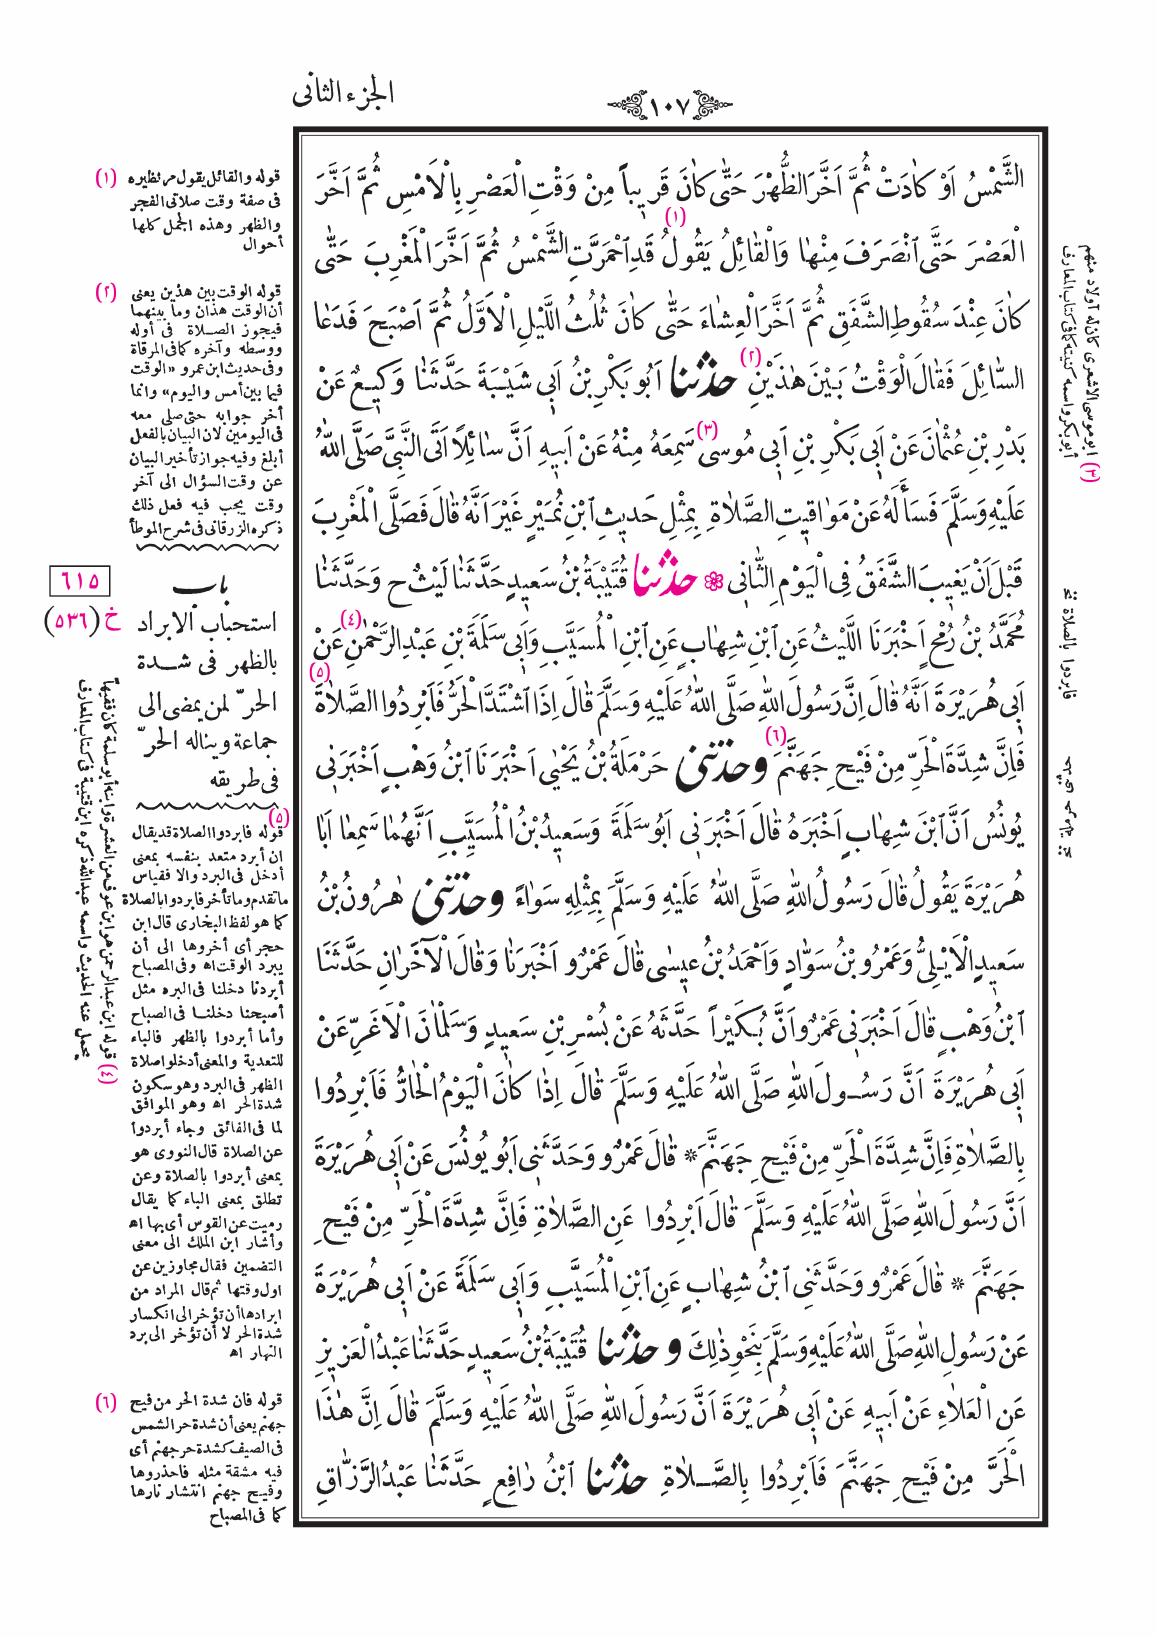 الجزء الثانى
١٠٧
الشَّمْسُ اَوْ كَادَتْ ثُمَّ اَخَّرَ الظُّهْرَ حَتّٰى كَانَ قَرِيباً مِنْ وَقْتِ الْعَصْرِ بِالْاَمْسِ ثُمَّ اَخَّرَ
الْعَصْرَ حَتَّى انْصَرَفَ مِنْهَا وَالْقَائِلُ يَقُولُ (١) قَدِ احْمَرَّتِ الشَّمْسُ ثُمَّ اَخَّرَ الْمَغْرِبَ حَتّٰى
كَانَ عِنْدَ سُقُوطِ الشَّفَقِ ثُمَّ اَخَّرَ الْعِشَاءَ حَتّٰى كَانَ ثُلُثُ اللَّيْلِ الْاَوَّلُ ثُمَّ اَصْبَحَ فَدَعَا
السَّائِلَ فَقَالَ الْوَقْتُ بَيْنَ هٰذَيْنِ (٢) حدثنا اَبُو بَكْرِ بْنُ اَبِى شَيْبَةَ حَدَّثَنَا وَكِيعٌ عَنْ
بَدْرِ بْنِ عُثْمَانَ عَنْ اَبِى بَكْرِ بْنِ اَبِى مُوسٰى (٣) سَمِعَهُ مِنْهُ عَنْ اَبِيهِ اَنَّ سَائِلاً اَتَى النَّبِىَّ صَلَّى اللّٰهُ
عَلَيْهِ وَسَلَّمَ فَسَأَلَهُ عَنْ مَوَاقِيتِ الصَّلَاةِ بِمِثْلِ حَدِيثِ ابْنِ نُمَيْرٍ غَيْرَ اَنَّهُ قَالَ فَصَلَّى الْمَغْرِبَ
قَبْلَ اَنْ يَغِيبَ الشَّفَقُ فِى الْيَوْمِ الثَّانِى ❁ حدثنا قُتَيْبَةُ بْنُ سَعِيدٍ حَدَّثَنَا لَيْثٌ ح وَحَدَّثَنَا
مُحَمَّدُ بْنُ رُمْحٍ اَخْبَرَنَا اللَّيْثُ عَنِ ابْنِ شِهَابٍ عَنِ ابْنِ الْمُسَيَّبِ وَاَبِى سَلَمَةَ بْنِ عَبْدِ الرَّحْمٰنِ (٤) عَنْ
اَبِى هُرَيْرَةَ اَنَّهُ قَالَ اِنَّ رَسُولَ اللّٰهِ صَلَّى اللّٰهُ عَلَيْهِ وَسَلَّمَ قَالَ اِذَا اشْتَدَّ الْحَرُّ فَاَبْرِدُوا الصَّلَاةَ (٥)
فَاِنَّ شِدَّةَ الْحَرِّ مِنْ فَيْحِ جَهَنَّمَ (٦) وحدثنى حَرْمَلَةُ بْنُ يَحْيٰى اَخْبَرَنَا ابْنُ وَهْبٍ اَخْبَرَنِى
يُونُسُ اَنَّ ابْنَ شِهَابٍ اَخْبَرَهُ قَالَ اَخْبَرَنِى اَبُو سَلَمَةَ وَسَعِيدُ بْنُ الْمُسَيَّبِ اَنَّهُمَا سَمِعَا اَبَا
هُرَيْرَةَ يَقُولُ قَالَ رَسُولُ اللّٰهِ صَلَّى اللّٰهُ عَلَيْهِ وَسَلَّمَ بِمِثْلِهِ سَوَاءً وحدثنى هٰرُونُ بْنُ
سَعِيدٍ الْاَيْلِىُّ وَعَمْرُو بْنُ سَوَّادٍ وَاَحْمَدُ بْنُ عِيسٰى قَالَ عَمْرٌو اَخْبَرَنَا وَقَالَ الْآخَرَانِ حَدَّثَنَا
ابْنُ وَهْبٍ قَالَ اَخْبَرَنِى عَمْرٌو اَنَّ بُكَيْراً حَدَّثَهُ عَنْ بُسْرِ بْنِ سَعِيدٍ وَسَلْمَانَ الْاَغَرِّ عَنْ
اَبِى هُرَيْرَةَ اَنَّ رَسُولَ اللّٰهِ صَلَّى اللّٰهُ عَلَيْهِ وَسَلَّمَ قَالَ اِذَا كَانَ الْيَوْمُ الْحَارُّ فَاَبْرِدُوا
بِالصَّلَاةِ فَاِنَّ شِدَّةَ الْحَرِّ مِنْ فَيْحِ جَهَنَّمَ * قَالَ عَمْرٌو وَحَدَّثَنِى اَبُو يُونُسَ عَنْ اَبِى هُرَيْرَةَ
اَنَّ رَسُولَ اللّٰهِ صَلَّى اللّٰهُ عَلَيْهِ وَسَلَّمَ قَالَ اَبْرِدُوا عَنِ الصَّلَاةِ فَاِنَّ شِدَّةَ الْحَرِّ مِنْ فَيْحِ
جَهَنَّمَ * قَالَ عَمْرٌو وَحَدَّثَنِى ابْنُ شِهَابٍ عَنِ ابْنِ الْمُسَيَّبِ وَاَبِى سَلَمَةَ عَنْ اَبِى هُرَيْرَةَ
عَنْ رَسُولِ اللّٰهِ صَلَّى اللّٰهُ عَلَيْهِ وَسَلَّمَ بِنَحْوِ ذٰلِكَ وحدثنا قُتَيْبَةُ بْنُ سَعِيدٍ حَدَّثَنَا عَبْدُ الْعَزِيزِ
عَنِ الْعَلَاءِ عَنْ اَبِيهِ عَنْ اَبِى هُرَيْرَةَ اَنَّ رَسُولَ اللّٰهِ صَلَّى اللّٰهُ عَلَيْهِ وَسَلَّمَ قَالَ اِنَّ هٰذَا
الْحَرَّ مِنْ فَيْحِ جَهَنَّمَ فَاَبْرِدُوا بِالصَّلَاةِ حدثنا ابْنُ رَافِعٍ حَدَّثَنَا عَبْدُ الرَّزَّاقِ
(١) قوله والقائل يقول مر نظيره
فى صفة وقت صلاتى الفجر
والظهر وهذه الجمل كلها
أحوال
(٢) قوله الوقت بين هذين يعنى
أن الوقت هذان وما بينهما
فيجوز الصلاة فى أوله
ووسطه وآخره كما فى المرقاة
وفى حديث ابن عمرو «الوقت
فيما بين أمس واليوم» وانما
أخر جوابه حتى صلى معه
فى اليومين لان البيان بالفعل
أبلغ وفيه جواز تأخير البيان
عن وقت السؤال الى آخر
وقت يجب فيه فعل ذلك
ذكره الزرقانى فى شرح الموطأ
٦١٥
خ (٥٣٦)
باب
استحباب الابراد
بالظهر فى شدة
الحرّ لمن يمضى الى
جماعة ويناله الحرّ
فى طريقه
(٥)
قوله فابردوا الصلاة قد يقال
ان أبرد متعد بنفسه بمعنى
أدخل فى البرد والا فقياس
ما تقدم وما تأخر فابردوا بالصلاة
كما هو لفظ البخارى قال ابن
حجر أى أخروها الى أن
يبرد الوقت اه وفى المصباح
أبردنا دخلنا فى البرد مثل
أصبحنا دخلنا فى الصباح
وأما أبردوا بالظهر فالباء
للتعدية والمعنى أدخلوا صلاة
الظهر فى البرد وهو سكون
شدة الحر اه وهو الموافق
لما فى الفائق وجاء أبردوا
عن الصلاة قال النووى هو
بمعنى أبردوا بالصلاة وعن
تطلق بمعنى الباء كما يقال
رميت عن القوس أى بها اه
وأشار ابن الملك الى معنى
التضمين فقال مجاوزين عن
اول وقتها ثم قال المراد من
ابرادها أن تؤخر الى انكسار
شدة الحر لا أن تؤخر الى برد
النهار اه
(٦) قوله فان شدة الحر من فيح
جهنم يعنى أن شدة حر الشمس
فى الصيف كشدة حر جهنم أى
فيه مشقة مثله فاحذروها
وفيح جهنم انتشار نارها
كما فى المصباح
(٤) قوله ابن عبد الرحمن هو ابن عوف من العشرة وابنه أبو سلمة كان فقيهاً
يحمل عنه الحديث واسمه عبد الله ذكره ابن قتيبة فى كتاب المعارف
(٣) ابو موسى الاشعرى كان له أولاد منهم
أبو بكر واسمه كنيته كما فى كتاب المعارف
فابردوا بالصلاة نخ